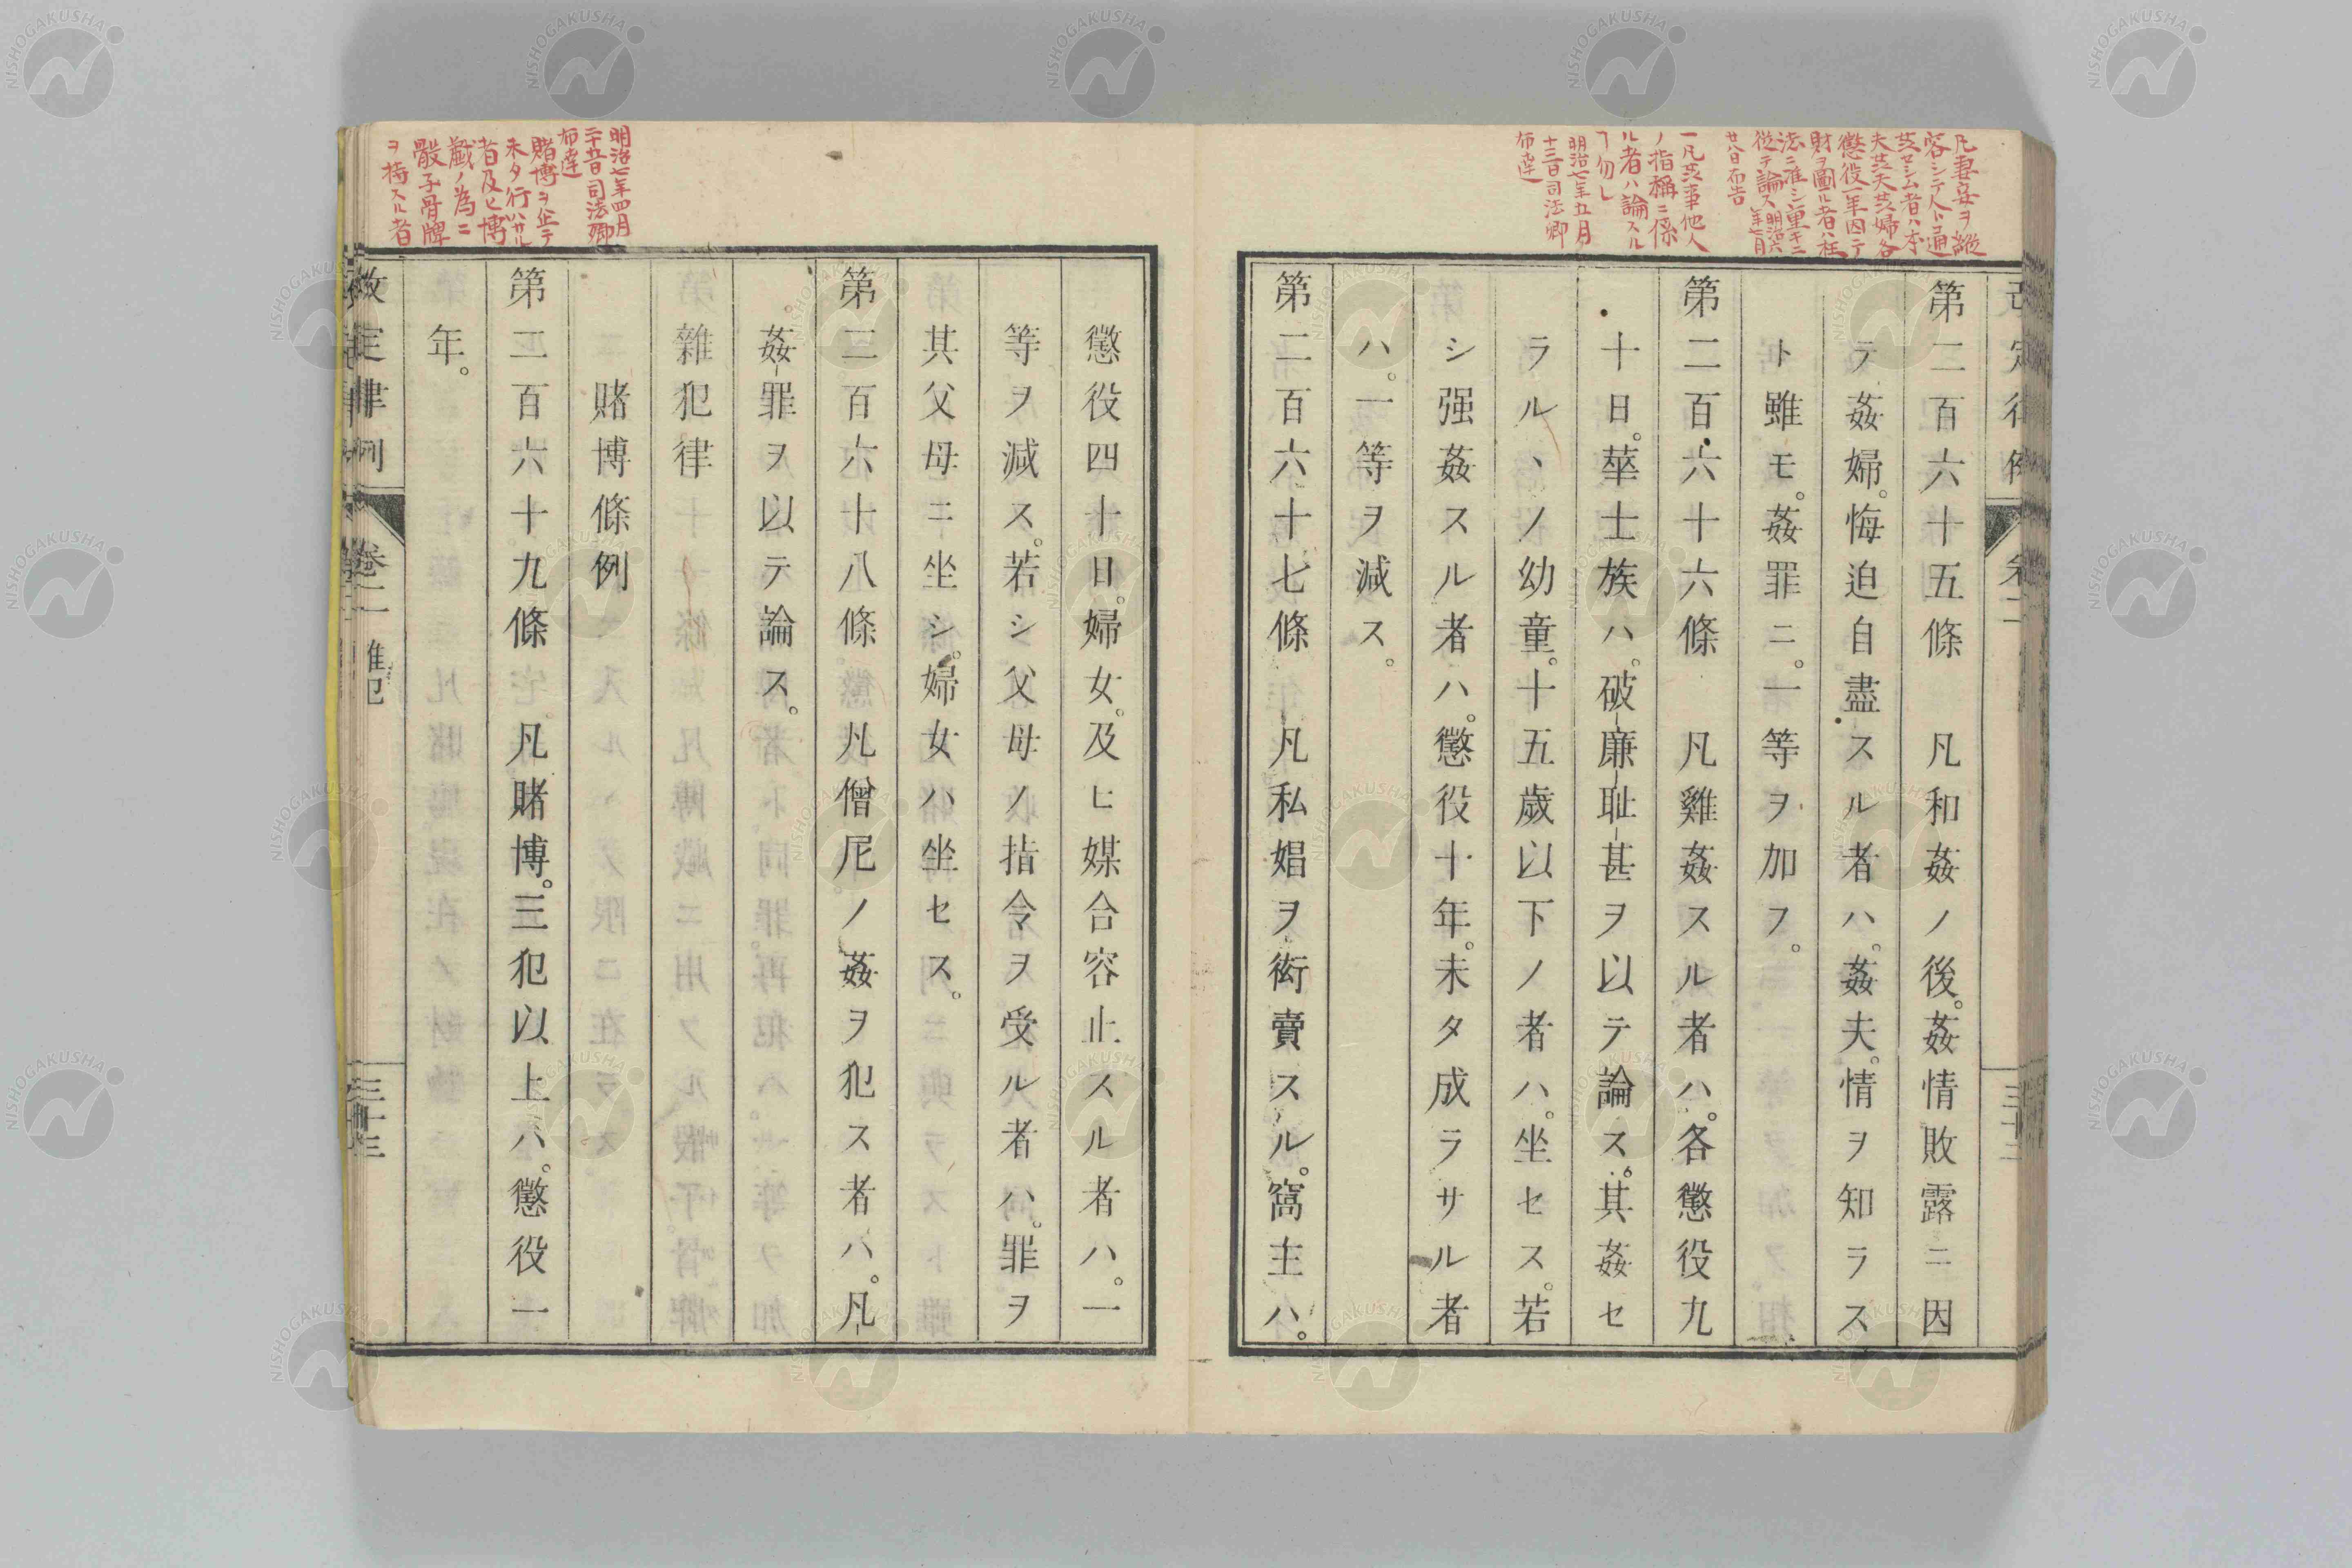 凡妻妾ヲ縦
容シテ人ト通
姦セシム者ハ本
夫姦夫姦婦各
懲役一年因テ
財ヲ圖ル者ハ枉
法ニ准シ重キニ
從テ論ス明治六
年七月
廿八日布告
一凡姦事他人
ノ指稱ニ係
ル者ハ論スル
ヿ勿レ
明治七年五月
十二日司法卿
布達
第二百六十五條　凡和姦ノ後。姦情敗露ニ因
テ姦婦。悔迫自盡スル者ハ。姦夫。情ヲ知ラス
ト雖モ。姦罪ニ。一等ヲ加フ。
第二百六十六條　凡雞姦スル者ハ。各懲役九
十日。華士族ハ。破廉恥甚ヲ以テ論ス。其姦セ
ラルヽノ幼童。十五歲以下ノ者ハ。坐セス。若
シ强姦スル者ハ。懲役十年。未タ成ラサル者
ハ。一等ヲ減ス。
第二百六十七條　凡私娼ヲ衒賣スル。窩主ハ。
明治七年四月
司法卿
布達
賭博ヲ止テ
未タ行ハサル
者及ヒ博
戲ノ為ニ
骰子骨牌
ヲ持スル者
懲役四十日。婦女。及ヒ媒合容止スル者ハ。一
等ヲ減ス。若シ父母ノ指令ヲ受ル者ハ。罪ヲ
其父母ニ坐シ。婦女ハ坐セス。
第二百六十八條　凡僧尼ノ姦ヲ犯ス者ハ。凡
姦罪ヲ以テ論ス。
雜犯律
賭博條例
第二百六十九條　凡賭博。三犯以上ハ。懲役一
年。
改定律例　卷二　雜犯　三十三
NISHOGAKUSHA